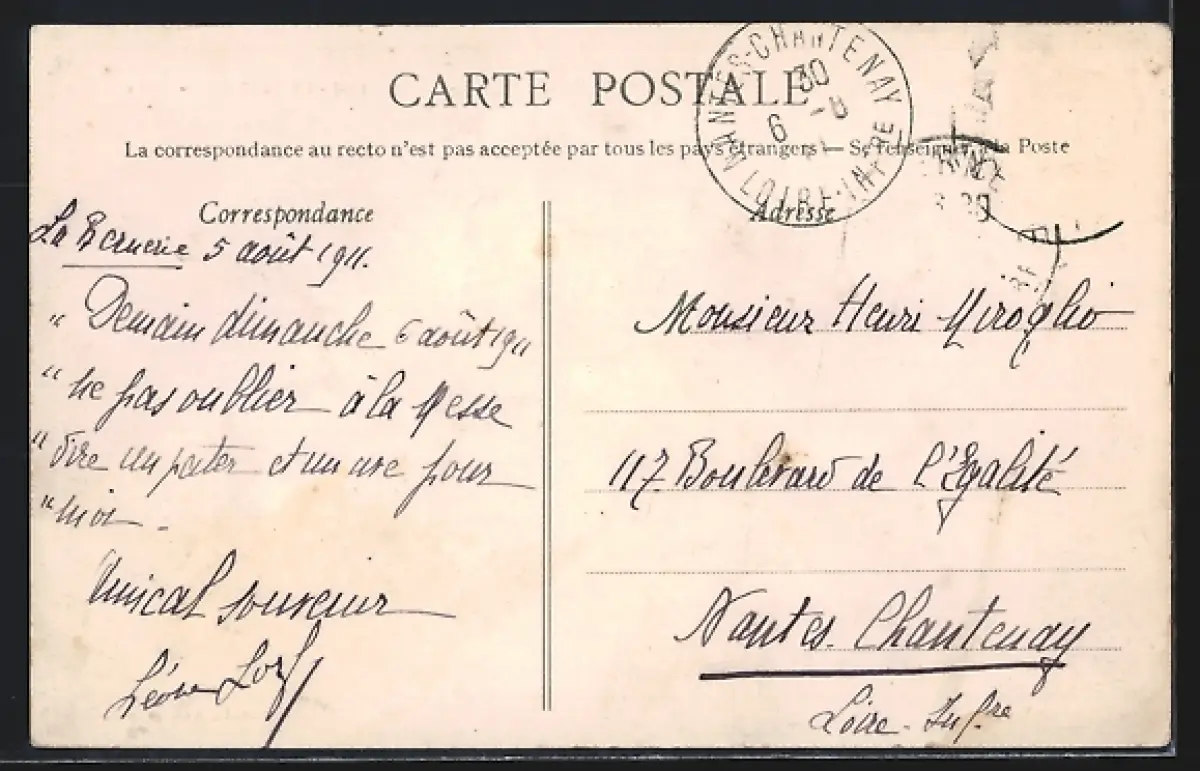 CARTE POSTALE
La correspondance au recto n'est pas acceptée par tous les pays étrangers — Se renseigner à la Poste
NANTES-CHANTENAY
30
6 -8
LOIRE-INFRE
Correspondance
La Bernerie 5 août 1911.
" Demain dimanche 6 août 1911
" ne pas oublier à la Messe
" dire un pater et un ave pour
" moi.
Amical souvenir
Léon
Adresse
Monsieur Henri Miroglio
117. Boulevard de l'Egalité
Nantes. Chantenay
Loire-Infre